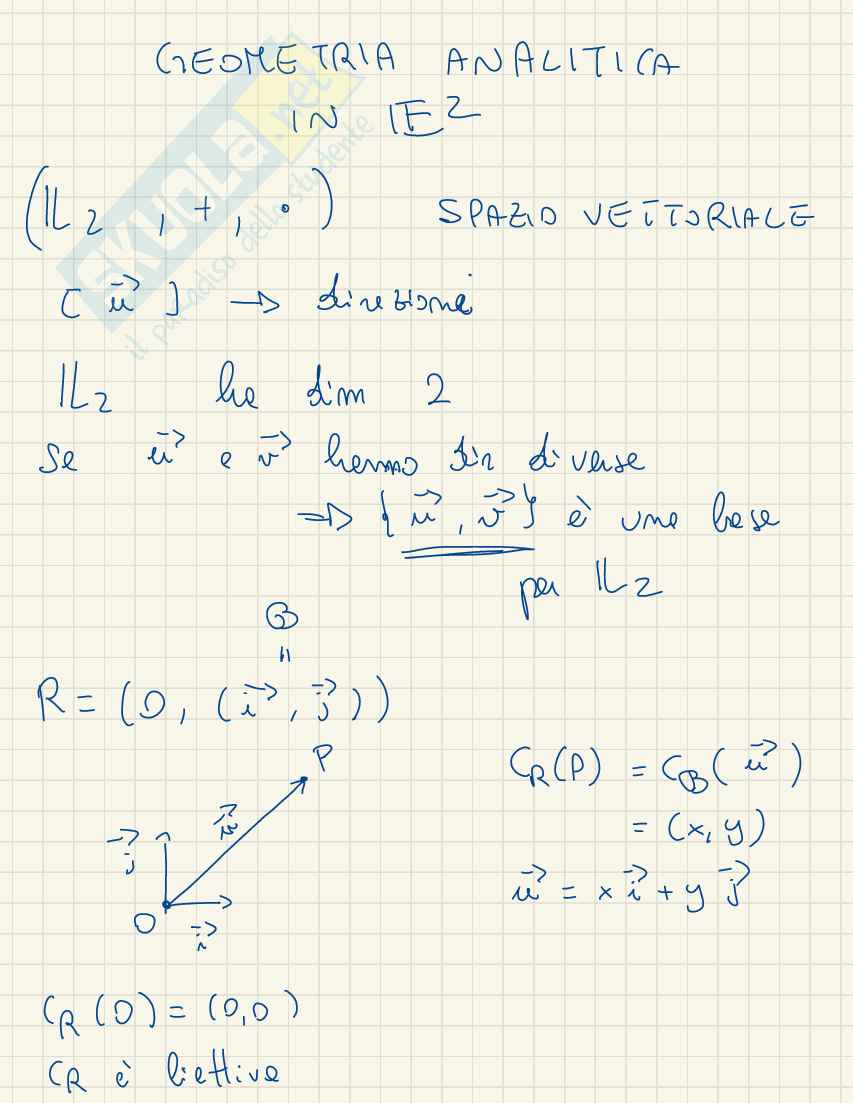 GEOMETRIA ANALITICA
IN 𝔼²
(𝕃₂ , +, •) SPAZIO VETTORIALE
[u⃗] → direzione
𝕃₂ ha dim 2
Se u⃗ e v⃗ hanno dir diverse
⇒ {u⃗, v⃗} è una base
per 𝕃₂
B
=
R = (O, (i⃗, j⃗))
P
C_R(P) = C_B(u⃗)
= (x, y)
u⃗
j⃗
u⃗ = x i⃗ + y j⃗
O
i⃗
C_R(O) = (0,0)
C_R è biettiva
SKUOLA.net
il paradiso dello studente